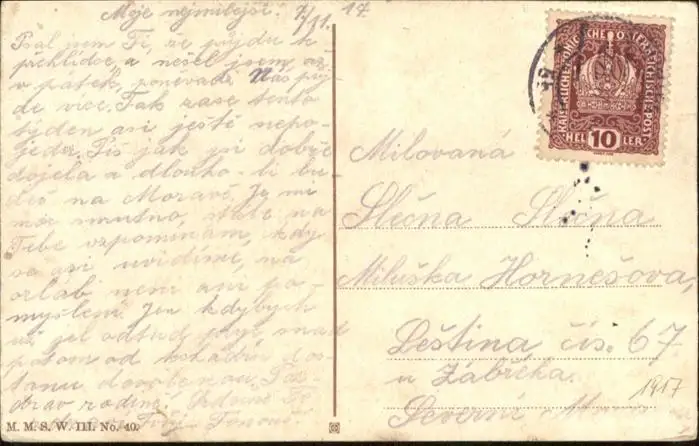 Moje nejmilejší! 7/11. 17
Psal jsem Ti, že půjdu k
přehlídce, a nešel jsem až
v pátek, poněvadž nás půj-
de více. Tak zase tento
týden asi ještě nepo-
jedu. Piš jak jsi dobře
dojela a dlouho-li bu-
deš na Moravě. Je mi
moc smutno, stále na
Tebe vzpomínám, kdy
se asi uvidíme, na
není ani po-
myšlení. Jen kdybych
už jel odtud pryč, snad
potom od kádru dos-
tanu dovolenou. Poz-
drav rodině. Srdečně Tě
Tvůj
M. M. S. W. III. No. 40.
KAISERLICHE KÖNIGLICHE ÖSTERREICHISCHE POST
HELLER 10
Milovaná
Slečna Slečna
Miluška Hornešova,
Leština čís. 67
u Zábřeha.
Severní Morava
1917